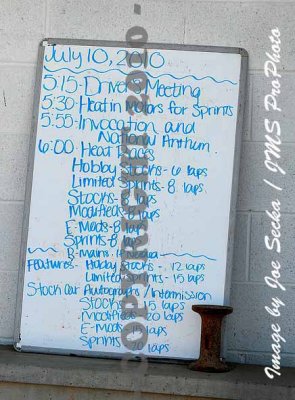 July 10, 2010
5:15-Drivers Meeting
5:30-Heat in Motors for Sprints
5:55-Invocation and
National Anthum
6:00-Heat Races
Hobby Stocks-6 laps
Limited Sprints-8 laps
Stocks-8 laps
Modifieds-8 laps
E-Mods-8 laps
Sprints-8 laps
B-mains
Features-Hobby Stocks-12 laps
Limited Sprints-15 laps
Stock Car Autographs/Intermission
Stocks-15 laps
Modifieds-20 laps
E-mods-15 laps
Sprints laps
Image by Joe Secka / JMS ProPhoto
COPYRIGHT 2010